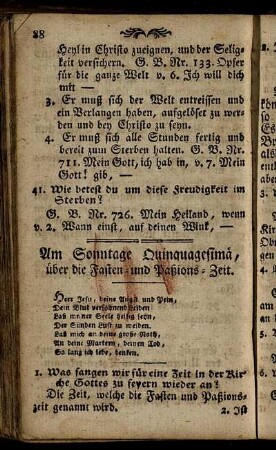 88
Heyl in Christo zueignen, und der Selig-
keit versichern. G. B. Nr. 133. Opfer
für die ganze Welt v. 6. Ich will dich
mit —
3. Er muß sich der Welt entreissen und
ein Verlangen haben, aufgelöset zu wer-
den und bey Christo zu seyn.
4. Er muß sich alle Stunden fertig und
bereit zum Sterben halten. G. B. Nr.
711. Mein Gott, ich hab in, v. 7. Mein
Gott! gib, —
41. Wie betest du um diese Freudigkeit im
Sterben?
G. B. Nr. 726. Mein Heiland, wenn
v. 2. Wann einst, auf deinen Wink, —
Am Sonntage Quinquagesimä,
über die Fasten- und Paßions-Zeit.
Herr Jesu, deine Angst und Pein,
Dein Blut
Laß meiner Seele heilig seyn,
Der Sünden Lust zu meiden.
Laß mich an deine große Noth,
An deine Martern, deinen Tod,
So lang ich lebe, denken.
1. Was fangen wir für eine Zeit in der Kir-
che Gottes zu feyern wieder an?
Die Zeit, welche die Fasten und Paßions-
zeit genannt wird.
2. Ist